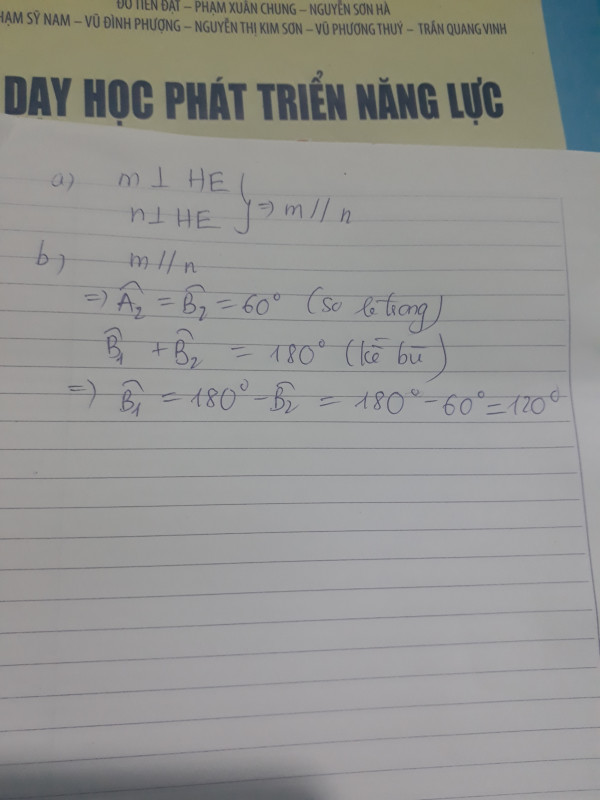 ĐỖ TIẾN ĐẠT – PHẠM XUÂN CHUNG – NGUYỄN SƠN HÀ
HẠM SỸ NAM – VŨ ĐÌNH PHƯỢNG – NGUYỄN THỊ KIM SƠN – VŨ PHƯƠNG THUÝ – TRẦN QUANG VINH
DẠY HỌC PHÁT TRIỂN NĂNG LỰC
a) m ⊥ HE
n ⊥ HE } => m // n
b) m // n
=> Â₂ = B̂₂ = 60° (so le trong)
B̂₁ + B̂₂ = 180° (kề bù)
=> B̂₁ = 180° - B̂₂ = 180° - 60° = 120°